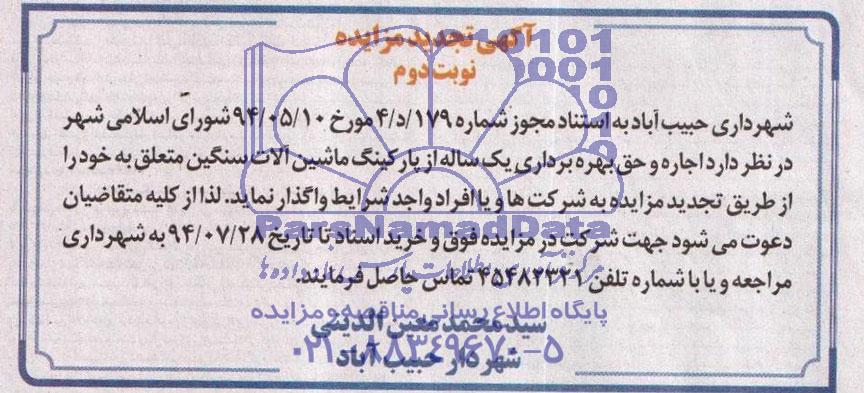 آگهی تجدید مزایده
نوبت دوم
شهرداری حبیب آباد به استناد مجوز شماره ۱۷۹/د/۴ مورخ ۹۴/۰۵/۱۰ شورای اسلامی شهر
در نظر دارد اجاره و حق بهره برداری یک ساله از پارکینگ ماشین آلات سنگین متعلق به خود را
از طریق تجدید مزایده به شرکت ها و یا افراد واجد شرایط واگذار نماید. لذا از کلیه متقاضیان
ParsNamadData
دعوت می شود جهت شرکت در مزایده فوق و خرید اسناد تا تاریخ ۹۴/۰۷/۲۸ به شهرداری
مراجعه و یا با شماره تلفن ۴۵۴۸۲۳۲۱ تماس حاصل فرمایند.
پایگاه اطلاع رسانی مناقصه و مزایده
سید محمد معین الدینی
۰۲۱-۸۸۳۴۹۶۷۰-۵
شهردار حبیب آباد